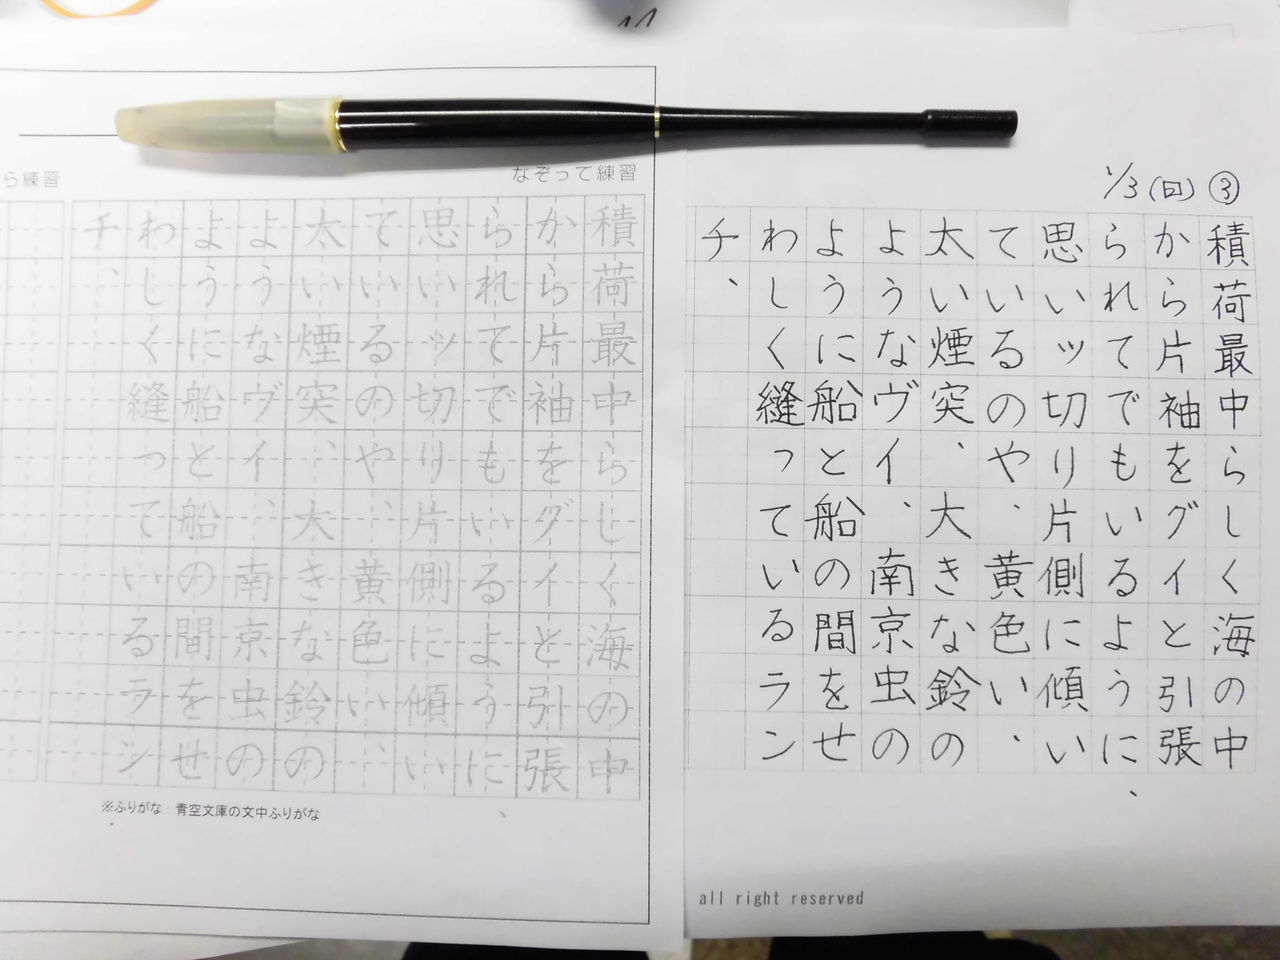 1/3(回) ③
積荷最中らしく海の中
から片袖をグイと引張
られてでもいるように、
思いッ切り片側に傾い
ているのや、黄色い、
太い煙突、大きな鈴の
ようなヴイ、南京虫の
ように船と船の間をせ
わしく縫っているラン
チ、
all right reserved
なぞって練習
積荷最中らしく海の中
から片袖をグイと引張
られてでもいるように、
思いッ切り片側に傾い
ているのや、黄色い、
太い煙突、大きな鈴の
ようなヴイ、南京虫の
ように船と船の間をせ
わしく縫っているラン
チ、
※ふりがな：青空文庫の文中ふりがな
ら練習